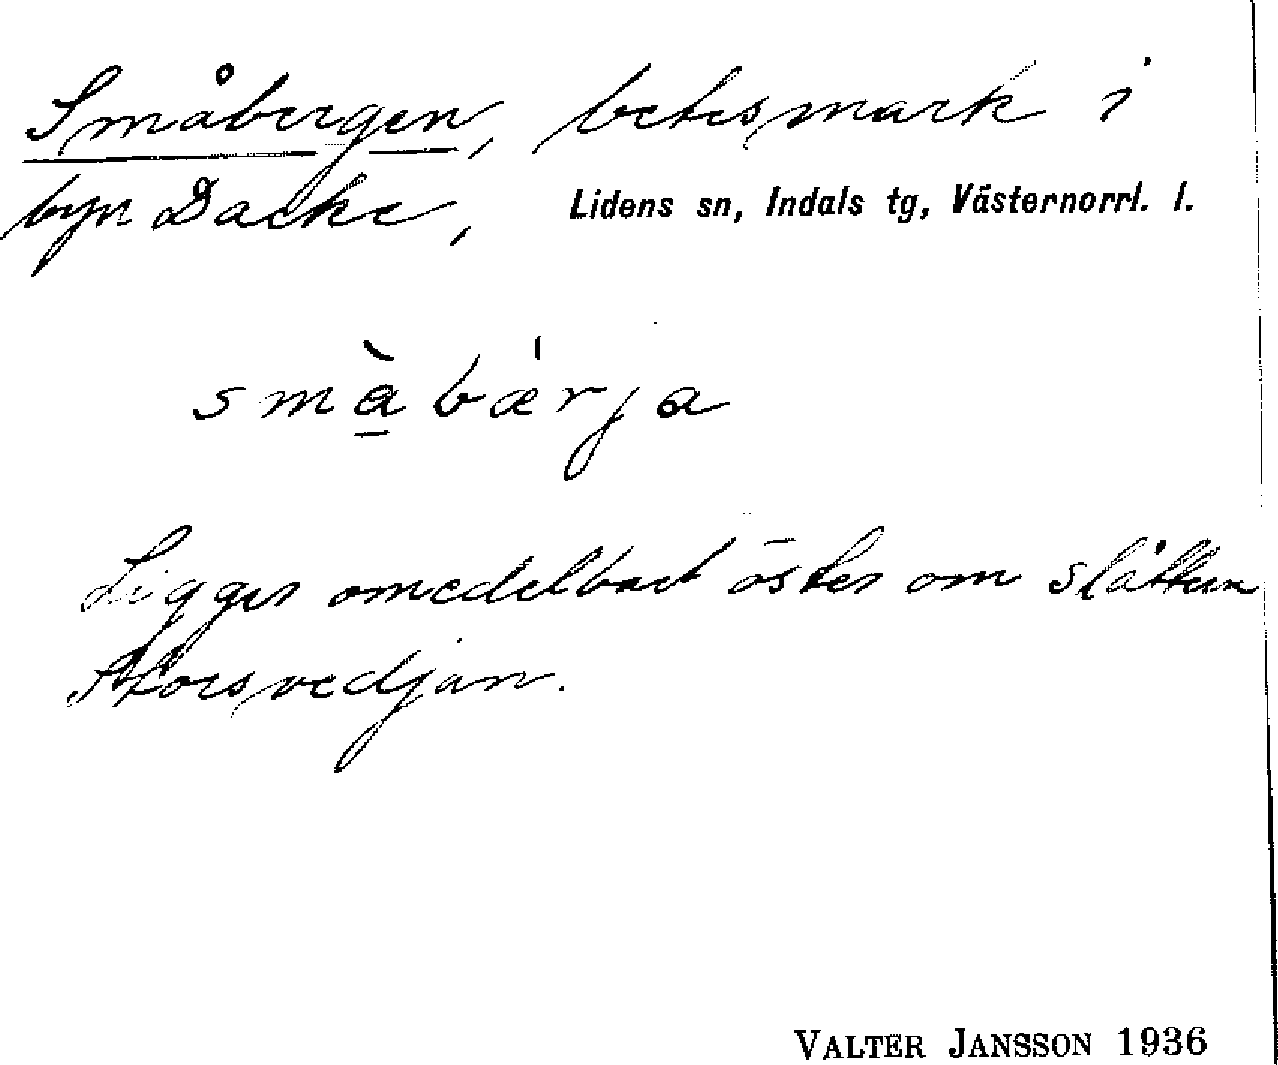 Småbergen, betesmark i
byn Dacke, Lidens sn, Indals tg, Västernorrl. l.
smàbǽrja
Ligger omedelbart öster om slåtten
Storsvedjan.
VALTER JANSSON 1936